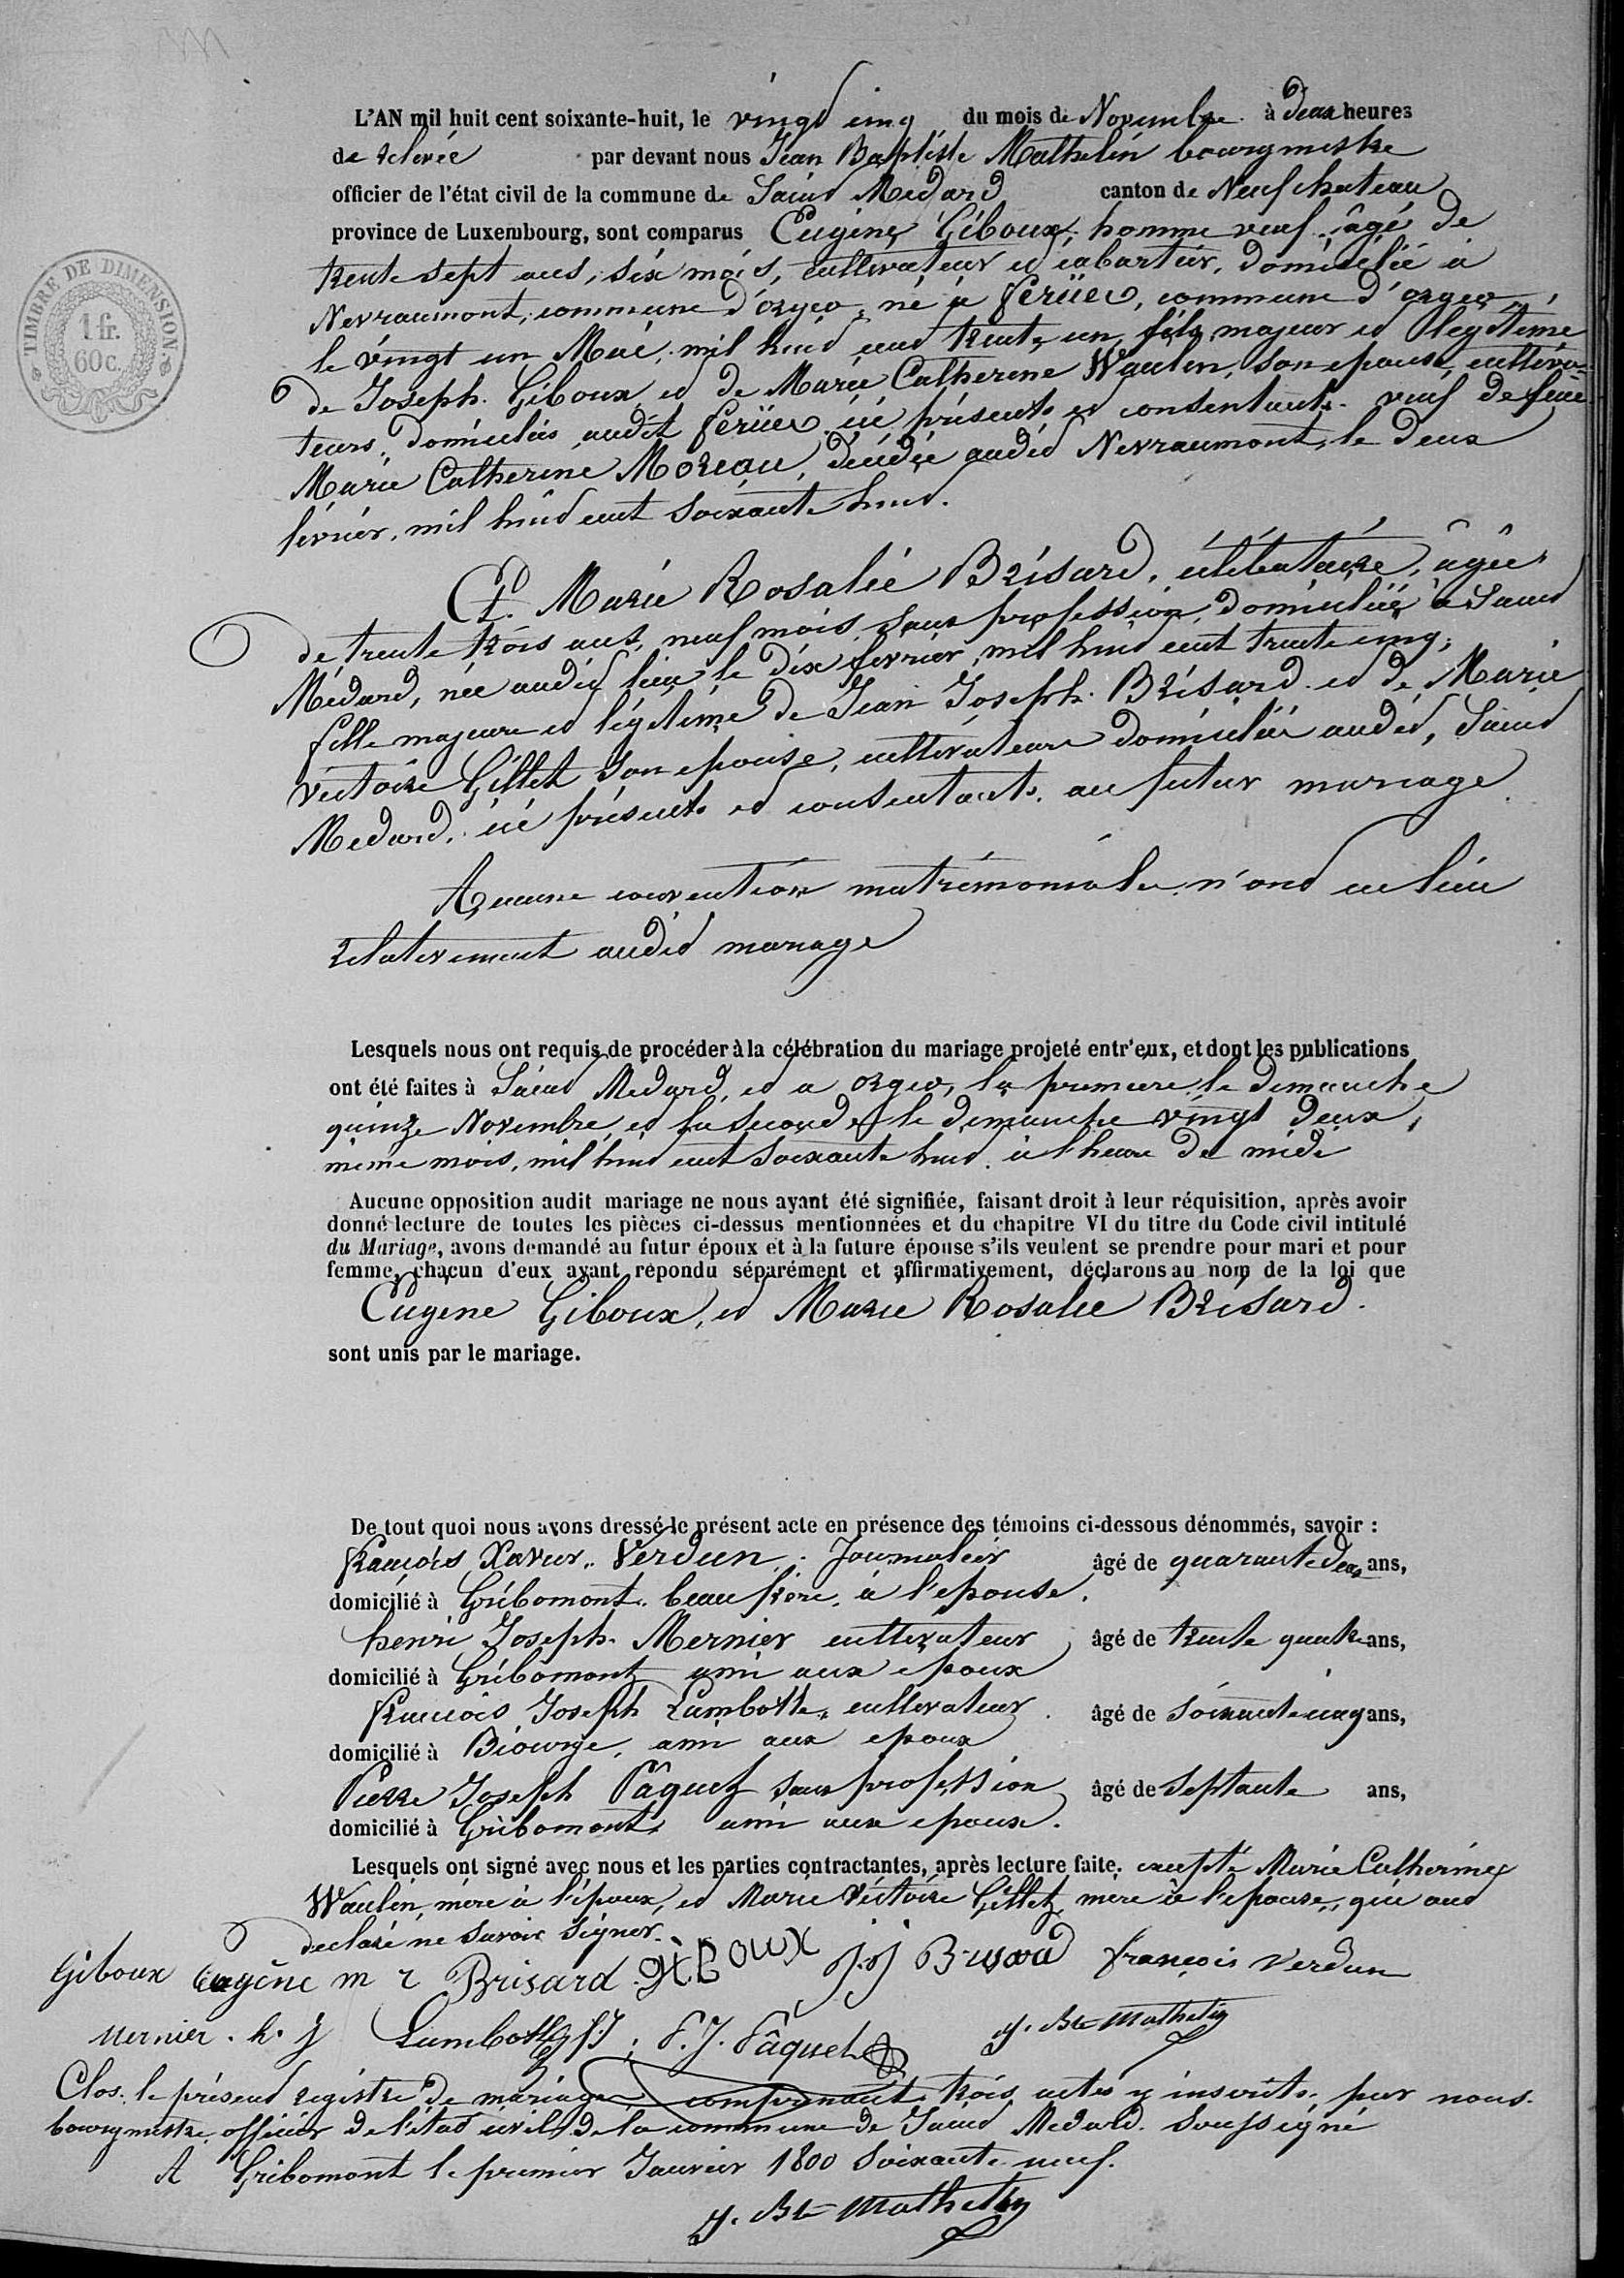 TIMBRE DE DIMENSION.
1 fr.
60 c.
L'AN mil huit cent soixante-huit, le vingt cinq du mois de Novembre à deux heures
de relevée par devant nous Jean Baptiste Mathelin bourgmestre
officier de l'état civil de la commune de Saint Medard canton de Neufchateau
province de Luxembourg, sont comparus Eugène Giboux, homme veuf, âgé de
trente sept ans, six mois, cultivateur et cabartier, domicilié à
Nevraumont, commune d'orgeo, né à ferües, commune d'orgeo,
le vingt un Mai, mil huit cent trente un, fils majeur et légitime
de Joseph Giboux et de Marie Catherine Waulin, son epouse, cultiva-
teurs, domiciliés audit ferües, ici présents et consentants. veuf de feue
Marie Catherine Moreau, décédée audit Nevraumont, le deux
février, mil huit cent soixante huit.
Et Marie Rosalie Brisard, célibataire, âgée
de trente trois ans, neuf mois, sans profession, domiciliée à Saint
Médard, née audit lieu le dix fevrier, mil huit cent trente cinq,
fille majeure et légitime de Jean Joseph Brisard et de Marie
victoire Gillet son epouse, cultivateurs domiciliés audit, Saint
Medard, ici présents et consentants, au futur mariage
Aucune convention matrimoniale n'ont eu lieu
relativement audit mariage
Lesquels nous ont requis de procéder à la célébration du mariage projeté entr'eux, et dont les publications
ont été faites à Saint Medard, et a orgeo, la premiere le dimanche
quinze Novembre et la seconde le dimanche vingt deux,
meme mois, mil huit cent soixante huit, à l'heure de midi
Aucune opposition audit mariage ne nous ayant été signifiée, faisant droit à leur réquisition, après avoir
donné lecture de toutes les pièces ci-dessus mentionnées et du chapitre VI du titre du Code civil intitulé
du Mariage, avons demandé au futur époux et à la future épouse s'ils veulent se prendre pour mari et pour
femme, chacun d'eux ayant répondu séparément et affirmativement, déclarons au nom de la loi que
Eugene Giboux, et Marie Rosalie Brisard.
sont unis par le mariage.
De tout quoi nous avons dressé le présent acte en présence des témoins ci-dessous dénommés, savoir :
françois Xavier Verdun, Journalier âgé de quarante deux ans,
domicilié à Gribomont, beau frère, à l'epouse.
henri Joseph Mernier cultivateur âgé de trente quatre ans,
domicilié à Gribomont ami aux epoux
françois Joseph Lambotte, cultivateur âgé de soixante cinq ans,
domicilié à Biourge, ami aux epoux
Pierre Joseph Pâquet sans profession âgé de septante ans,
domicilié à Gribomont, ami aux epoux.
Lesquels ont signé avec nous et les parties contractantes, après lecture faite. excepté Marie Catherine
Waulin, mère à l'époux, et Marie Victoire Gillet, mère à l'epouse, qui ont
declaré ne savoir signer.
Giboux Eugène m r Brisard giboux j.j Brisard françois verdun
Mernier. h. j Lambotte f J, P. J. Pâquet J. Bte Mathelin
Clos le présent registre de mariage comprenant trois actes y inscrits, par nous
bourgmestre officier de l'état civil de la commune de Saint Medard soussigné
A Gribomont le premier Janvier 1800 soixante neuf.
J. Bte Mathelin